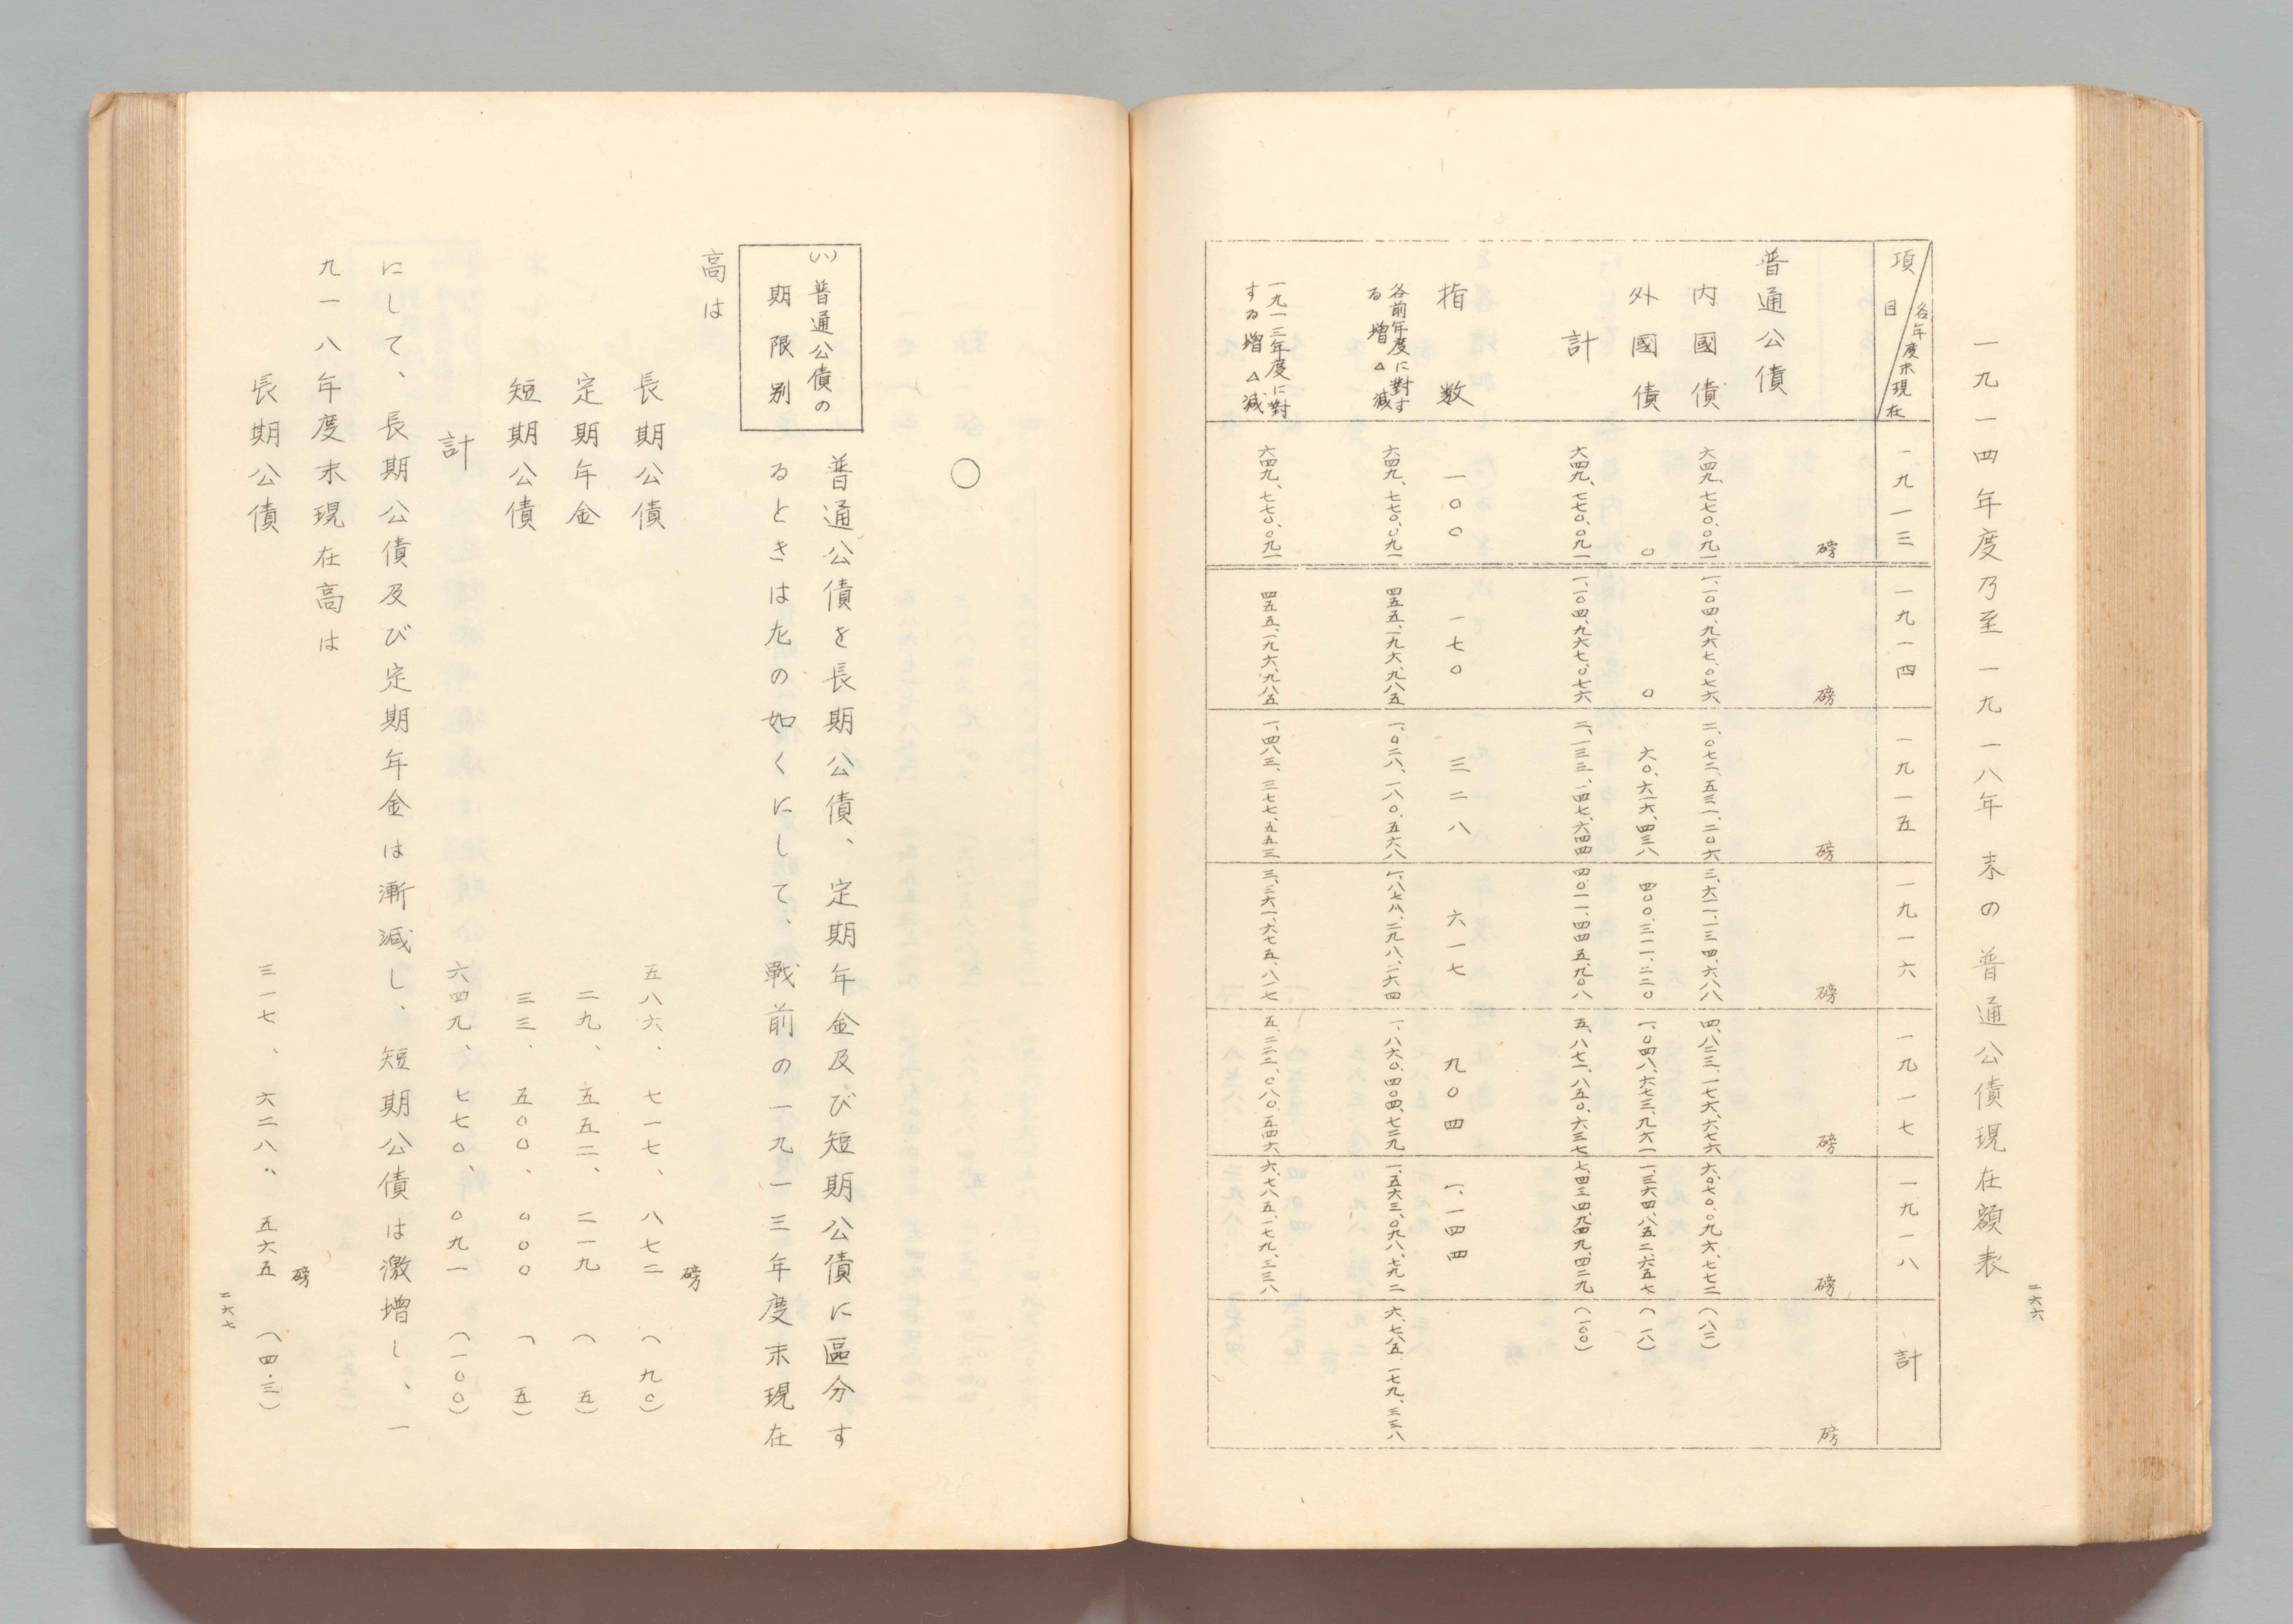 一九一四年度乃至一九一八年末の普通公債現在額表
二六六
項目 各年度末現在 一九一三 一九一四 一九一五 一九一六 一九一七 一九一八 計
磅 磅 磅 磅 磅 磅 磅
普通公債
内國債 六四九、七七〇、〇九一 一、一〇四、九六七、〇七六 二、〇七二、五三一、二〇六 三、六一一、一三四、六八八 四、八二三、一七六、六七六 六、〇七〇、〇九六、七七二 (八二)
外國債 〇 〇 六〇、六一六、四三八 四〇〇、三一一、二二〇 一、〇四八、六七三、九六一 一、三六四、八五二、六五七 (一八)
計 六四九、七七〇、〇九一 一、一〇四、九六七、〇七六 二、一三三、一四七、六四四 四、〇一一、四四五、九〇八 五、八七一、八五〇、六三七 七、四三四、九四九、四二九 (一〇〇)
指数 一〇〇 一七〇 三二八 六一七 九〇四 一、一四四
各前年度に對す
る増△減 六四九、七七〇、〇九一 四五五、一九六、九八五 一、〇二八、一八〇、五六八 一、八七八、二九八、二六四 一、八六〇、四〇四、七二九 一、五六三、〇九八、七九二 六、七八五、一七九、三三八
一九一三年度に對
する増△減 六四九、七七〇、〇九一 四五五、一九六、九八五 一、四八三、三七七、五五三 三、三六一、六七五、八一七 五、二二二、〇八〇、五四六 六、七八五、一七九、三三八
〇
(ハ)普通公債の
期限別
普通公債を長期公債、定期年金及び短期公債に區分す
るときは左の如くにして、戰前の一九一三年度末現在
高は
磅
長期公債 五八六、七一七、八七二 (九〇)
定期年金 二九、五五二、二一九 (五)
短期公債 三三、五〇〇、〇〇〇 (五)
計 六四九、七七〇、〇九一 (一〇〇)
にして、長期公債及び定期年金は漸減し、短期公債は激増し、一
九一八年度末現在高は
磅
長期公債 三一七、六二八、五六五 (四・三)
二六七